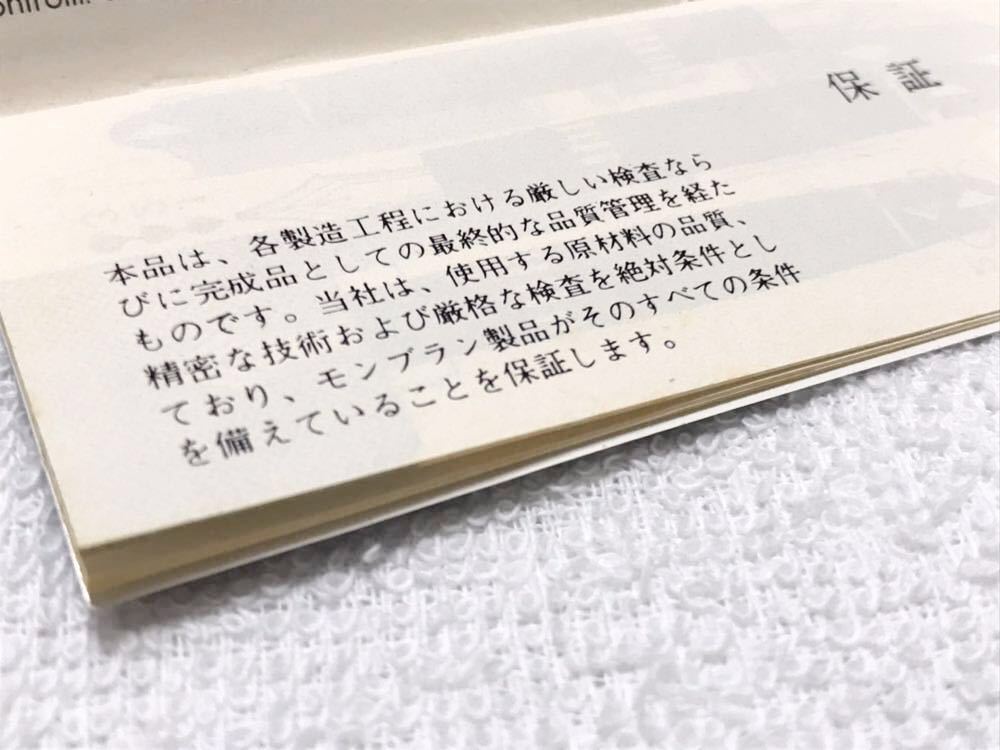 保証
本品は、各製造工程における厳しい検査なら
びに完成品としての最終的な品質管理を経た
ものです。当社は、使用する原材料の品質、
精密な技術および厳格な検査を絶対条件とし
ており、モンブラン製品がそのすべての条件
を備えていることを保証します。